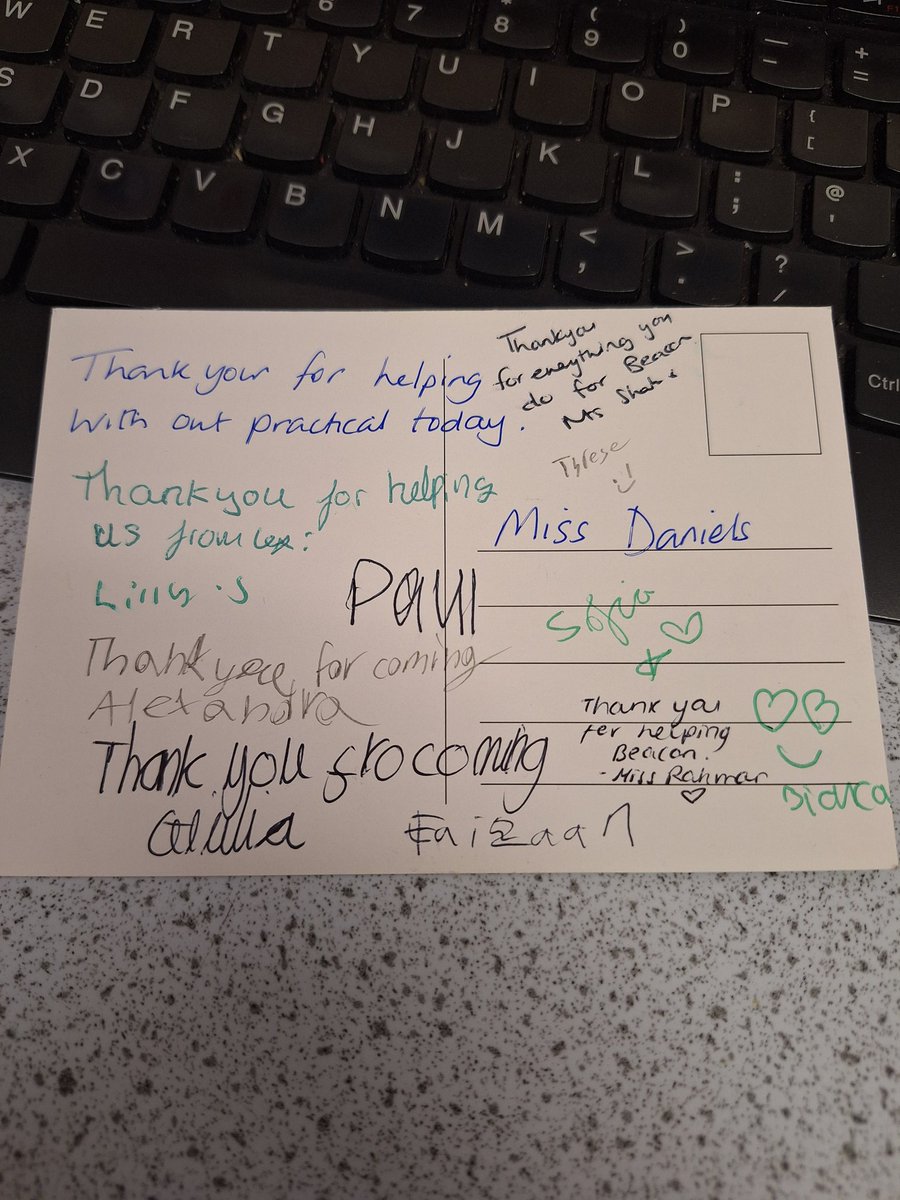 W E R T Y U I O P { [
6 7 * 8 ( 9 ) 0 — - + =
S D F G H J K L : ; @ '
X C V B N M < , > . ? /
Ctrl
Thank your for helping
with out practical today.
Thankyou for helping
us from
Lilly.S
Paul
Thankyou for coming
Alexandra
Thank you fro coming
Faizaan
Thankyou
for everything you
do for Beacon
Ms Shah
Threse
:)
Miss Daniels
Sofia
Thank you
for helping
Beacon.
- Miss Rahman
Bianca